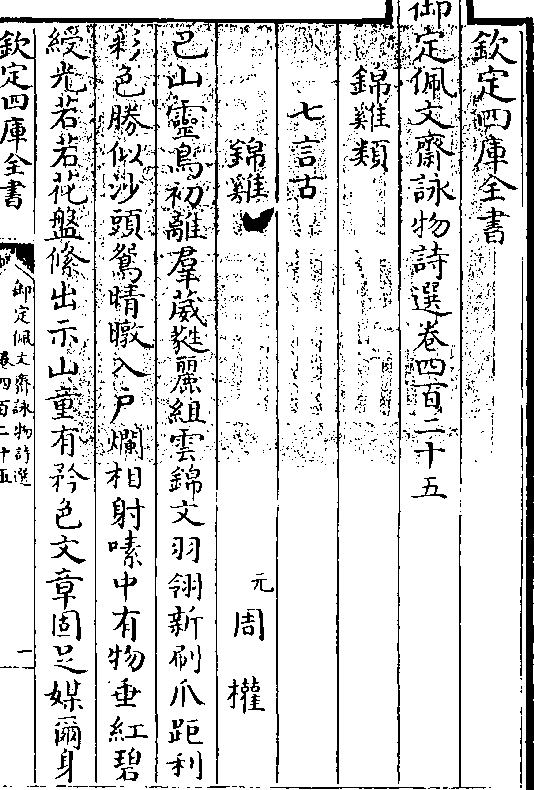 欽定四庫全書
御定佩文齋詠物詩選卷四百二十五
錦雞類
七言古
錦雞
元 周權
巴山靈鳥初離羣葳蕤麗組雲錦文羽翎新刷爪距利
彩色勝似沙頭鴛晴暾入户爛相射嗉中有物垂紅碧
綬光若若花盤絛出示山童有矜色文章固足媒爾身
欽定四庫全書
御定佩文齋詠物詩選
卷四百二十五
一